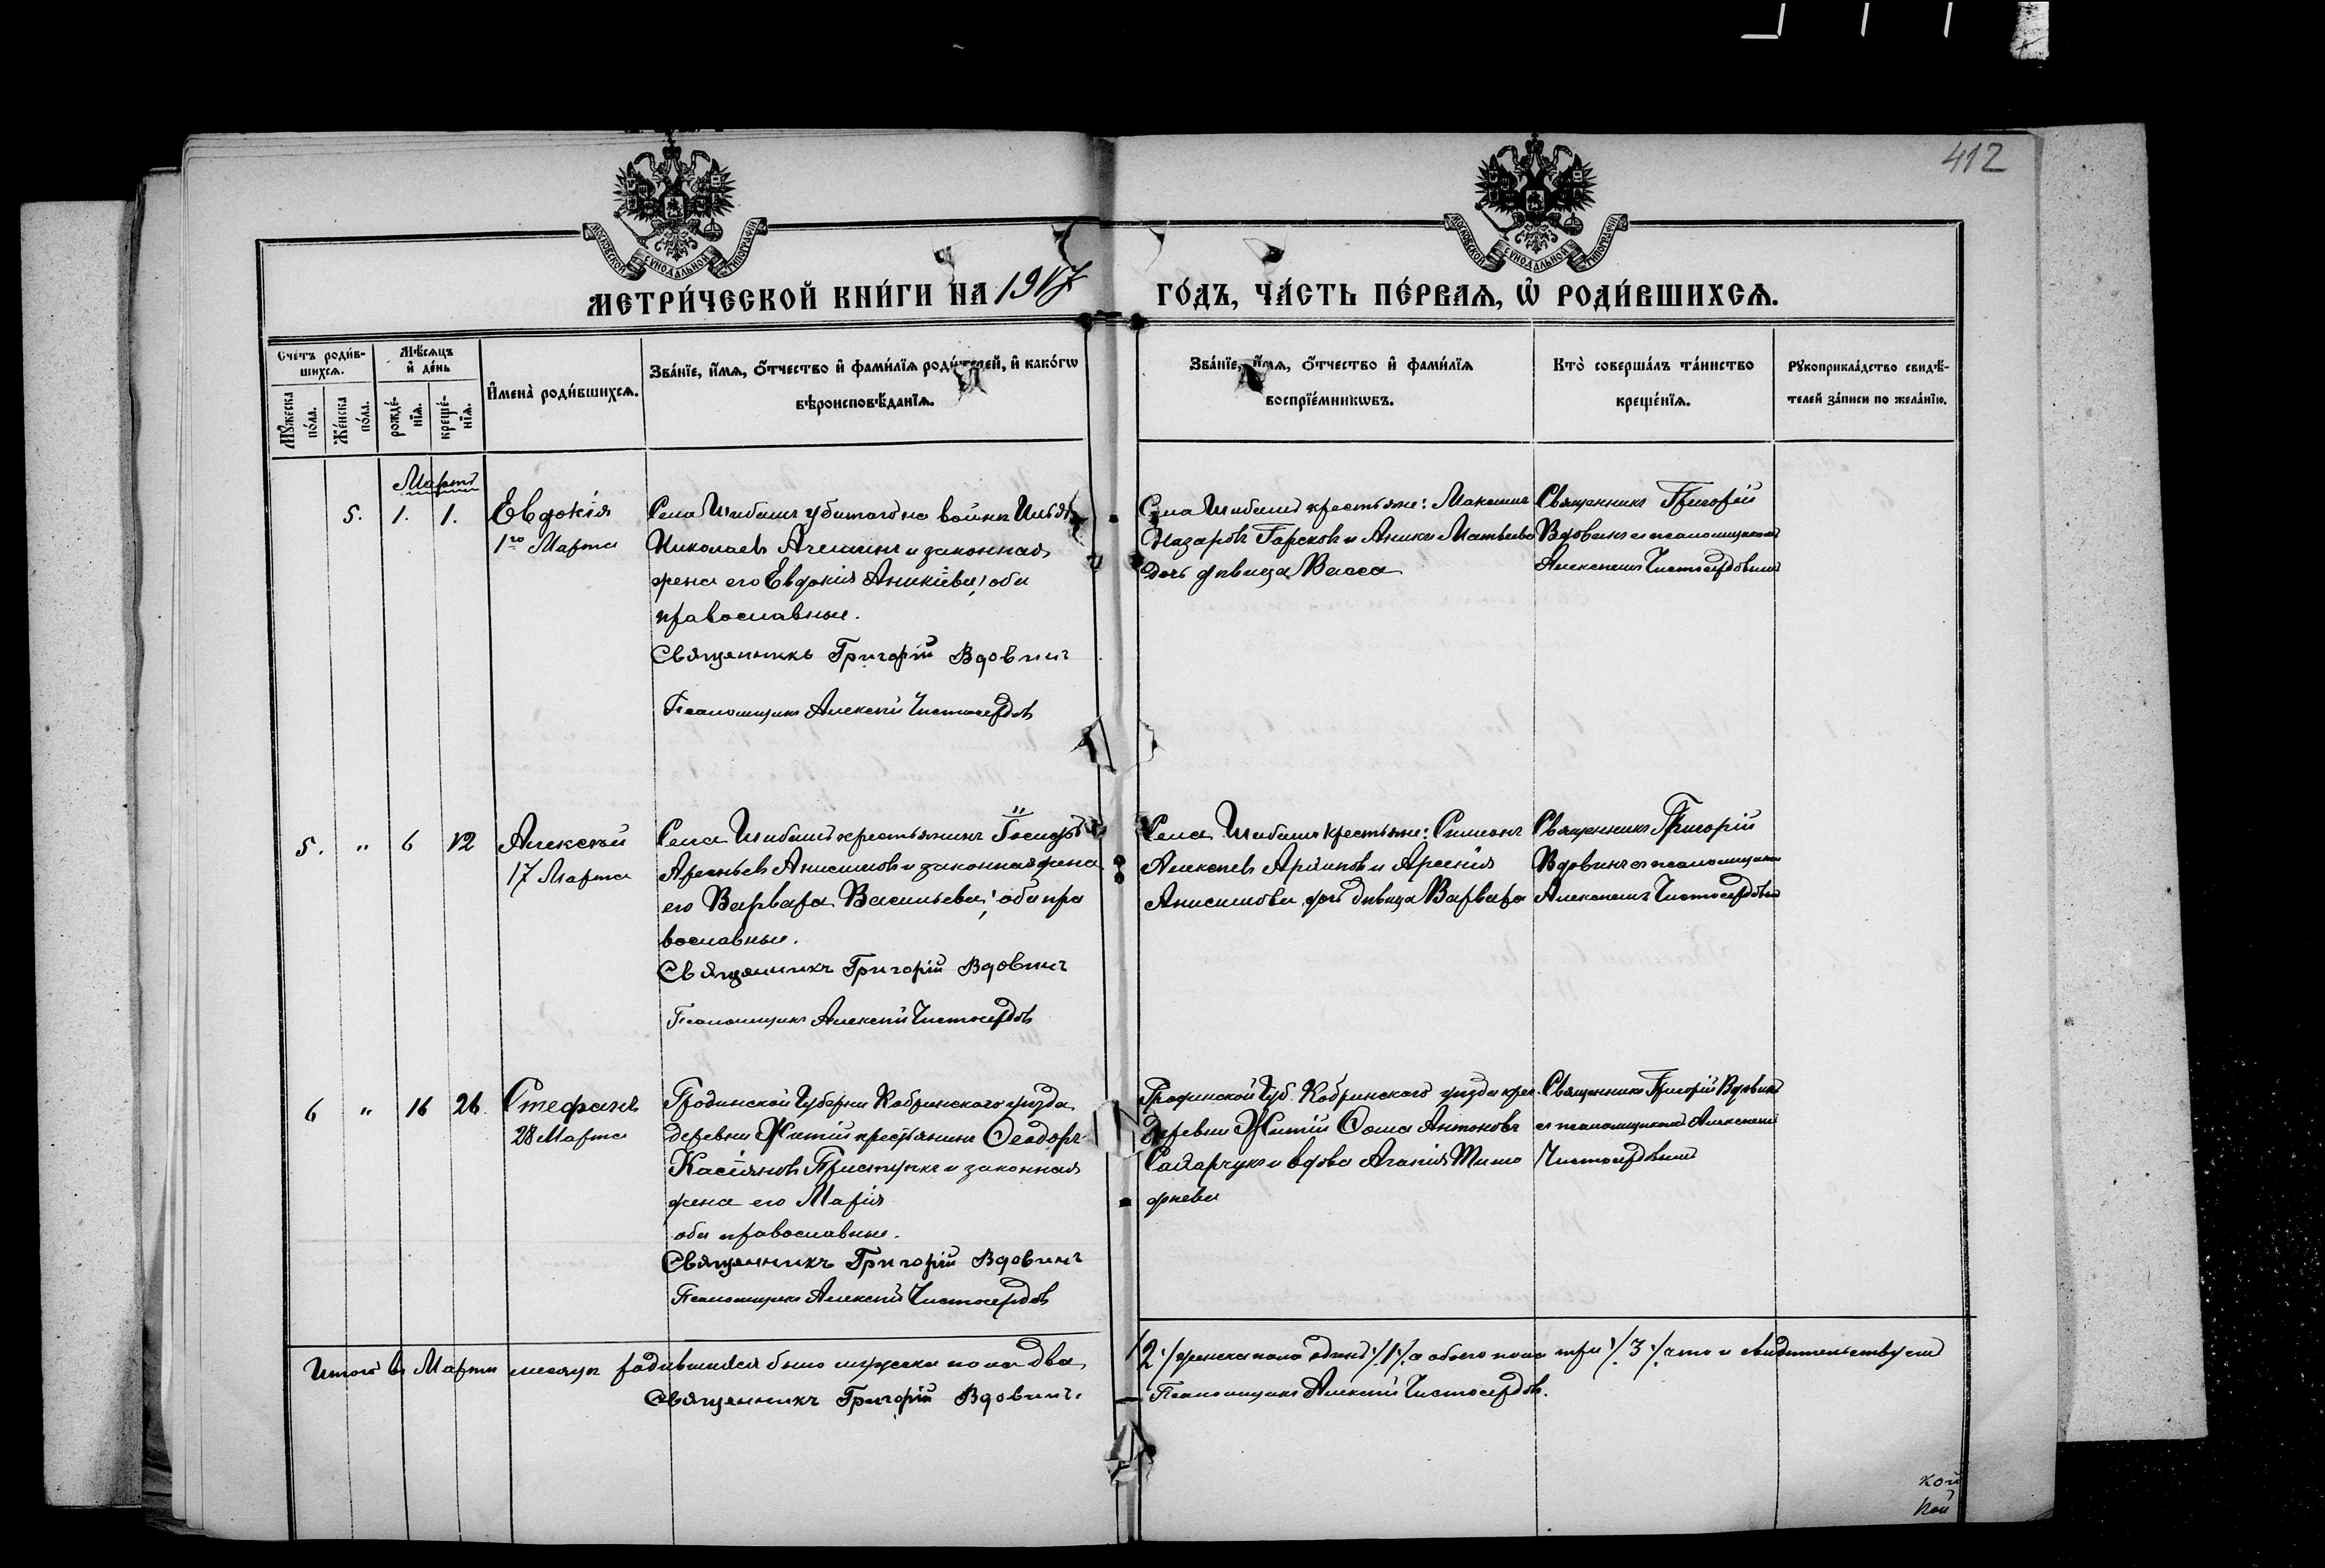 412
МОСКОВСКОЙ СѴНОДАЛЬНОЙ ТИПОГРАФІИ
МОСКОВСКОЙ СѴНОДАЛЬНОЙ ТИПОГРАФІИ
МЕТРИ́ЧЕСКОЙ КНИ́ГИ НА 1917 ГО́ДЪ, ЧА́СТЬ ПЕ́РВАЯ, Ѡ҆ РОДИ́ВШИХСЯ.
Сче́тъ роди́в-
шихся.
Мѣ́сяцъ
и҆ де́нь
Мꙋ́жеска
по́ла.
Же́нска
по́ла.
рожде́-
нія.
креще́-
нія.
И҆мена̀ роди́вшихся.
Зва́нїе, и҆́мя, ѻ҆́тчество и҆ фами́лїя роди́телей, и҆ како́гѡ
вѣроисповѣ́данїя.
Зва́нїе, и҆́мя, ѻ҆́тчество и҆ фами́лїя
воспрїе́мникѡвъ.
Кто̀ соверша́лъ та́инство
креще́нїя.
Рꙋкоприкла́дство свидѣ́-
телей за́писи по жела́нїю.
Мартъ
5. 1. 1. Евдокія
1го Марта
Села Шибаши убитаго на войнѣ Илья
Николаевъ и законная
жена его Евдокія Аникіева, оба
православные.
Священникъ Григорій Вдовинъ
Псаломщикъ Алексѣй Чистосердовъ
Села Шибаши крестьяне: Максимъ
Назаровъ Горсковъ и Аники Матвѣева
дочь дѣвица Васса
Священникъ Григорій
Вдовинъ съ псаломщикомъ
Алексѣемъ Чистосердовымъ
5. " 6 12 Алексѣй
17 Марта
Села Шибаши крестьянинъ
Арсеньевъ Анисимовъ и законная жена
его Варвара Васильева, оба пра
вославные.
Священникъ Григорій Вдовинъ
Псаломщикъ Алексѣй Чистосердовъ
Села Шибаши крестьяне: Симеонъ
Алексѣевъ и Арсенія
Анисимова дочь дѣвица Варвара
Священникъ Григорій
Вдовинъ съ псаломщикомъ
Алексѣемъ Чистосердовымъ
6 " 16 26. Стефанъ
28 Марта
Гродненской Губерніи Кобринскаго уѣзда
деревни крестьянинъ Ѳеодоръ
Касіяновъ и законная
жена его Марія
оба православные.
Священникъ Григорій Вдовинъ
Псаломщикъ Алексѣй Чистосердовъ
Гродненской Губ. Кобринскаго уѣзда крес.
деревни Ѳома Антоновъ
и вдова Агапія Тимо
фѣева
Священникъ Григорій Вдовинъ
съ псаломщикомъ Алексѣемъ
Чистосердовымъ
Итого въ Мартѣ мѣсяцѣ родившихся было мужеска пола два /2/ женска пола одинъ /1/ а обоего пола три /3/ что и свидѣтельствуемъ
Священникъ Григорій Вдовинъ.
Псаломщикъ Алексѣй Чистосердовъ.
кой
кой